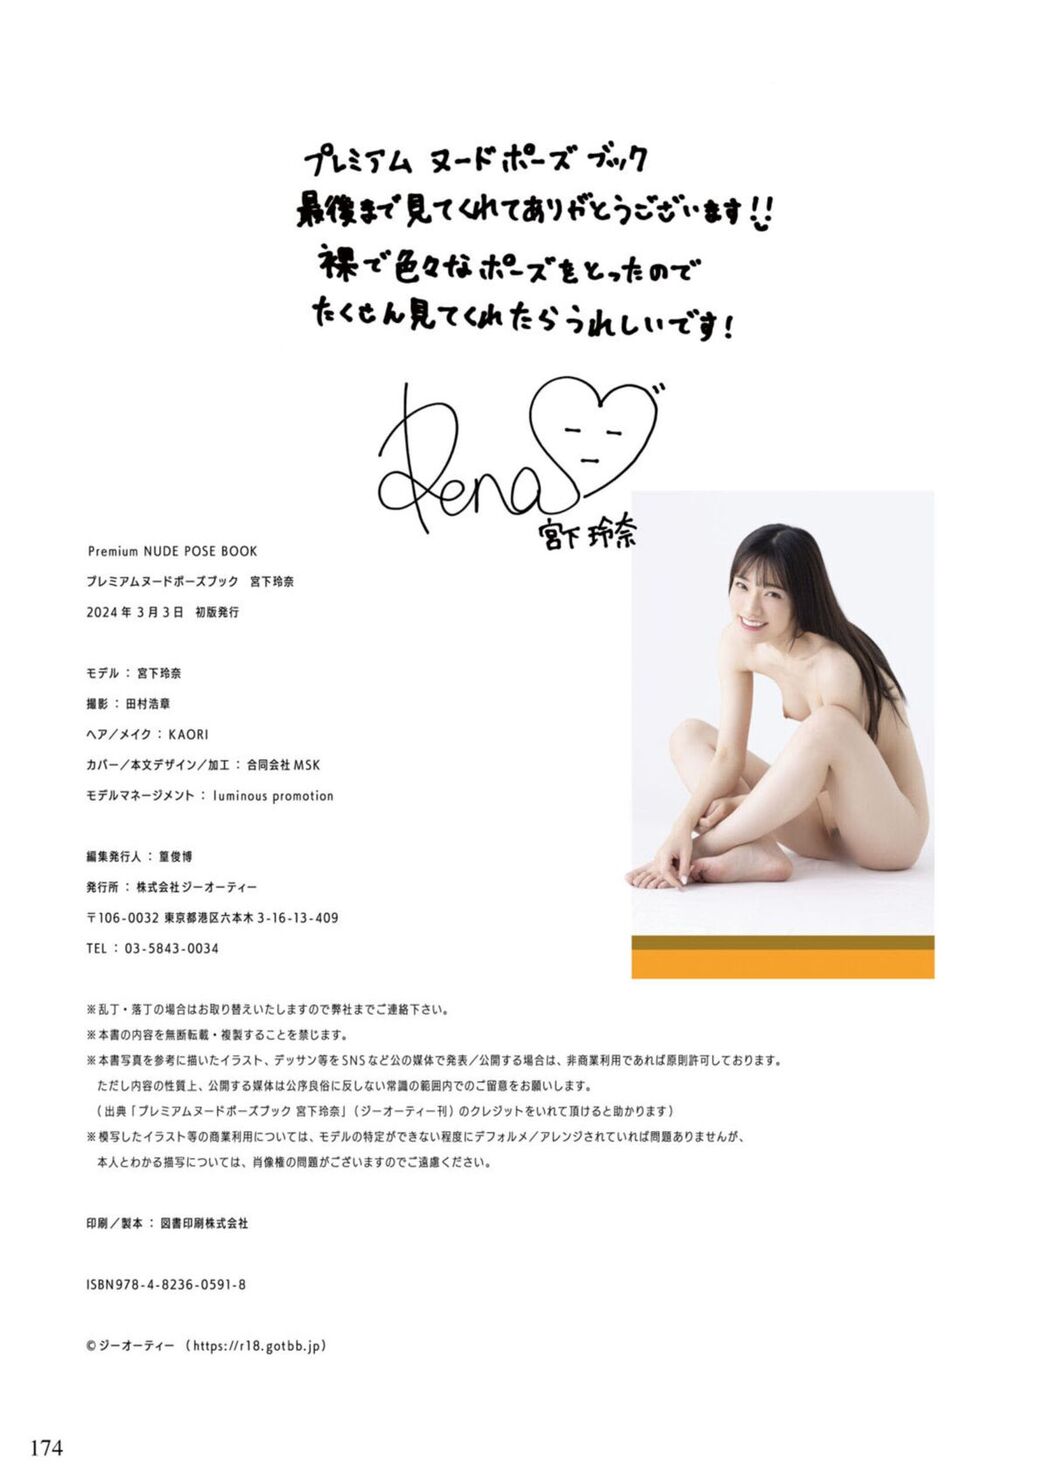 プレミアム ヌードポーズ ブック
最後まで見てくれてありがとうございます!!
裸で色々なポーズをとったので
たくさん見てくれたらうれしいです!
Rena
宮下玲奈
Premium NUDE POSE BOOK
プレミアムヌードポーズブック 宮下玲奈
2024年3月3日 初版発行
モデル：宮下玲奈
撮影：田村浩章
ヘア／メイク：KAORI
カバー／本文デザイン／加工：合同会社MSK
モデルマネージメント：luminous promotion
編集発行人：篁俊博
発行所：株式会社ジーオーティー
〒106-0032 東京都港区六本木3-16-13-409
TEL：03-5843-0034
※乱丁・落丁の場合はお取り替えいたしますので弊社までご連絡下さい。
※本書の内容を無断転載・複製することを禁じます。
※本書写真を参考に描いたイラスト、デッサン等をSNSなど公の媒体で発表／公開する場合は、非商業利用であれば原則許可しております。
ただし内容の性質上、公開する媒体は公序良俗に反しない常識の範囲内でのご留意をお願いします。
（出典「プレミアムヌードポーズブック 宮下玲奈」（ジーオーティー刊）のクレジットをいれて頂けると助かります）
※模写したイラスト等の商業利用については、モデルの特定ができない程度にデフォルメ／アレンジされていれば問題ありませんが、
本人とわかる描写については、肖像権の問題がございますのでご遠慮ください。
印刷／製本：図書印刷株式会社
ISBN978-4-8236-0591-8
©ジーオーティー （https://r18.gotbb.jp）
174